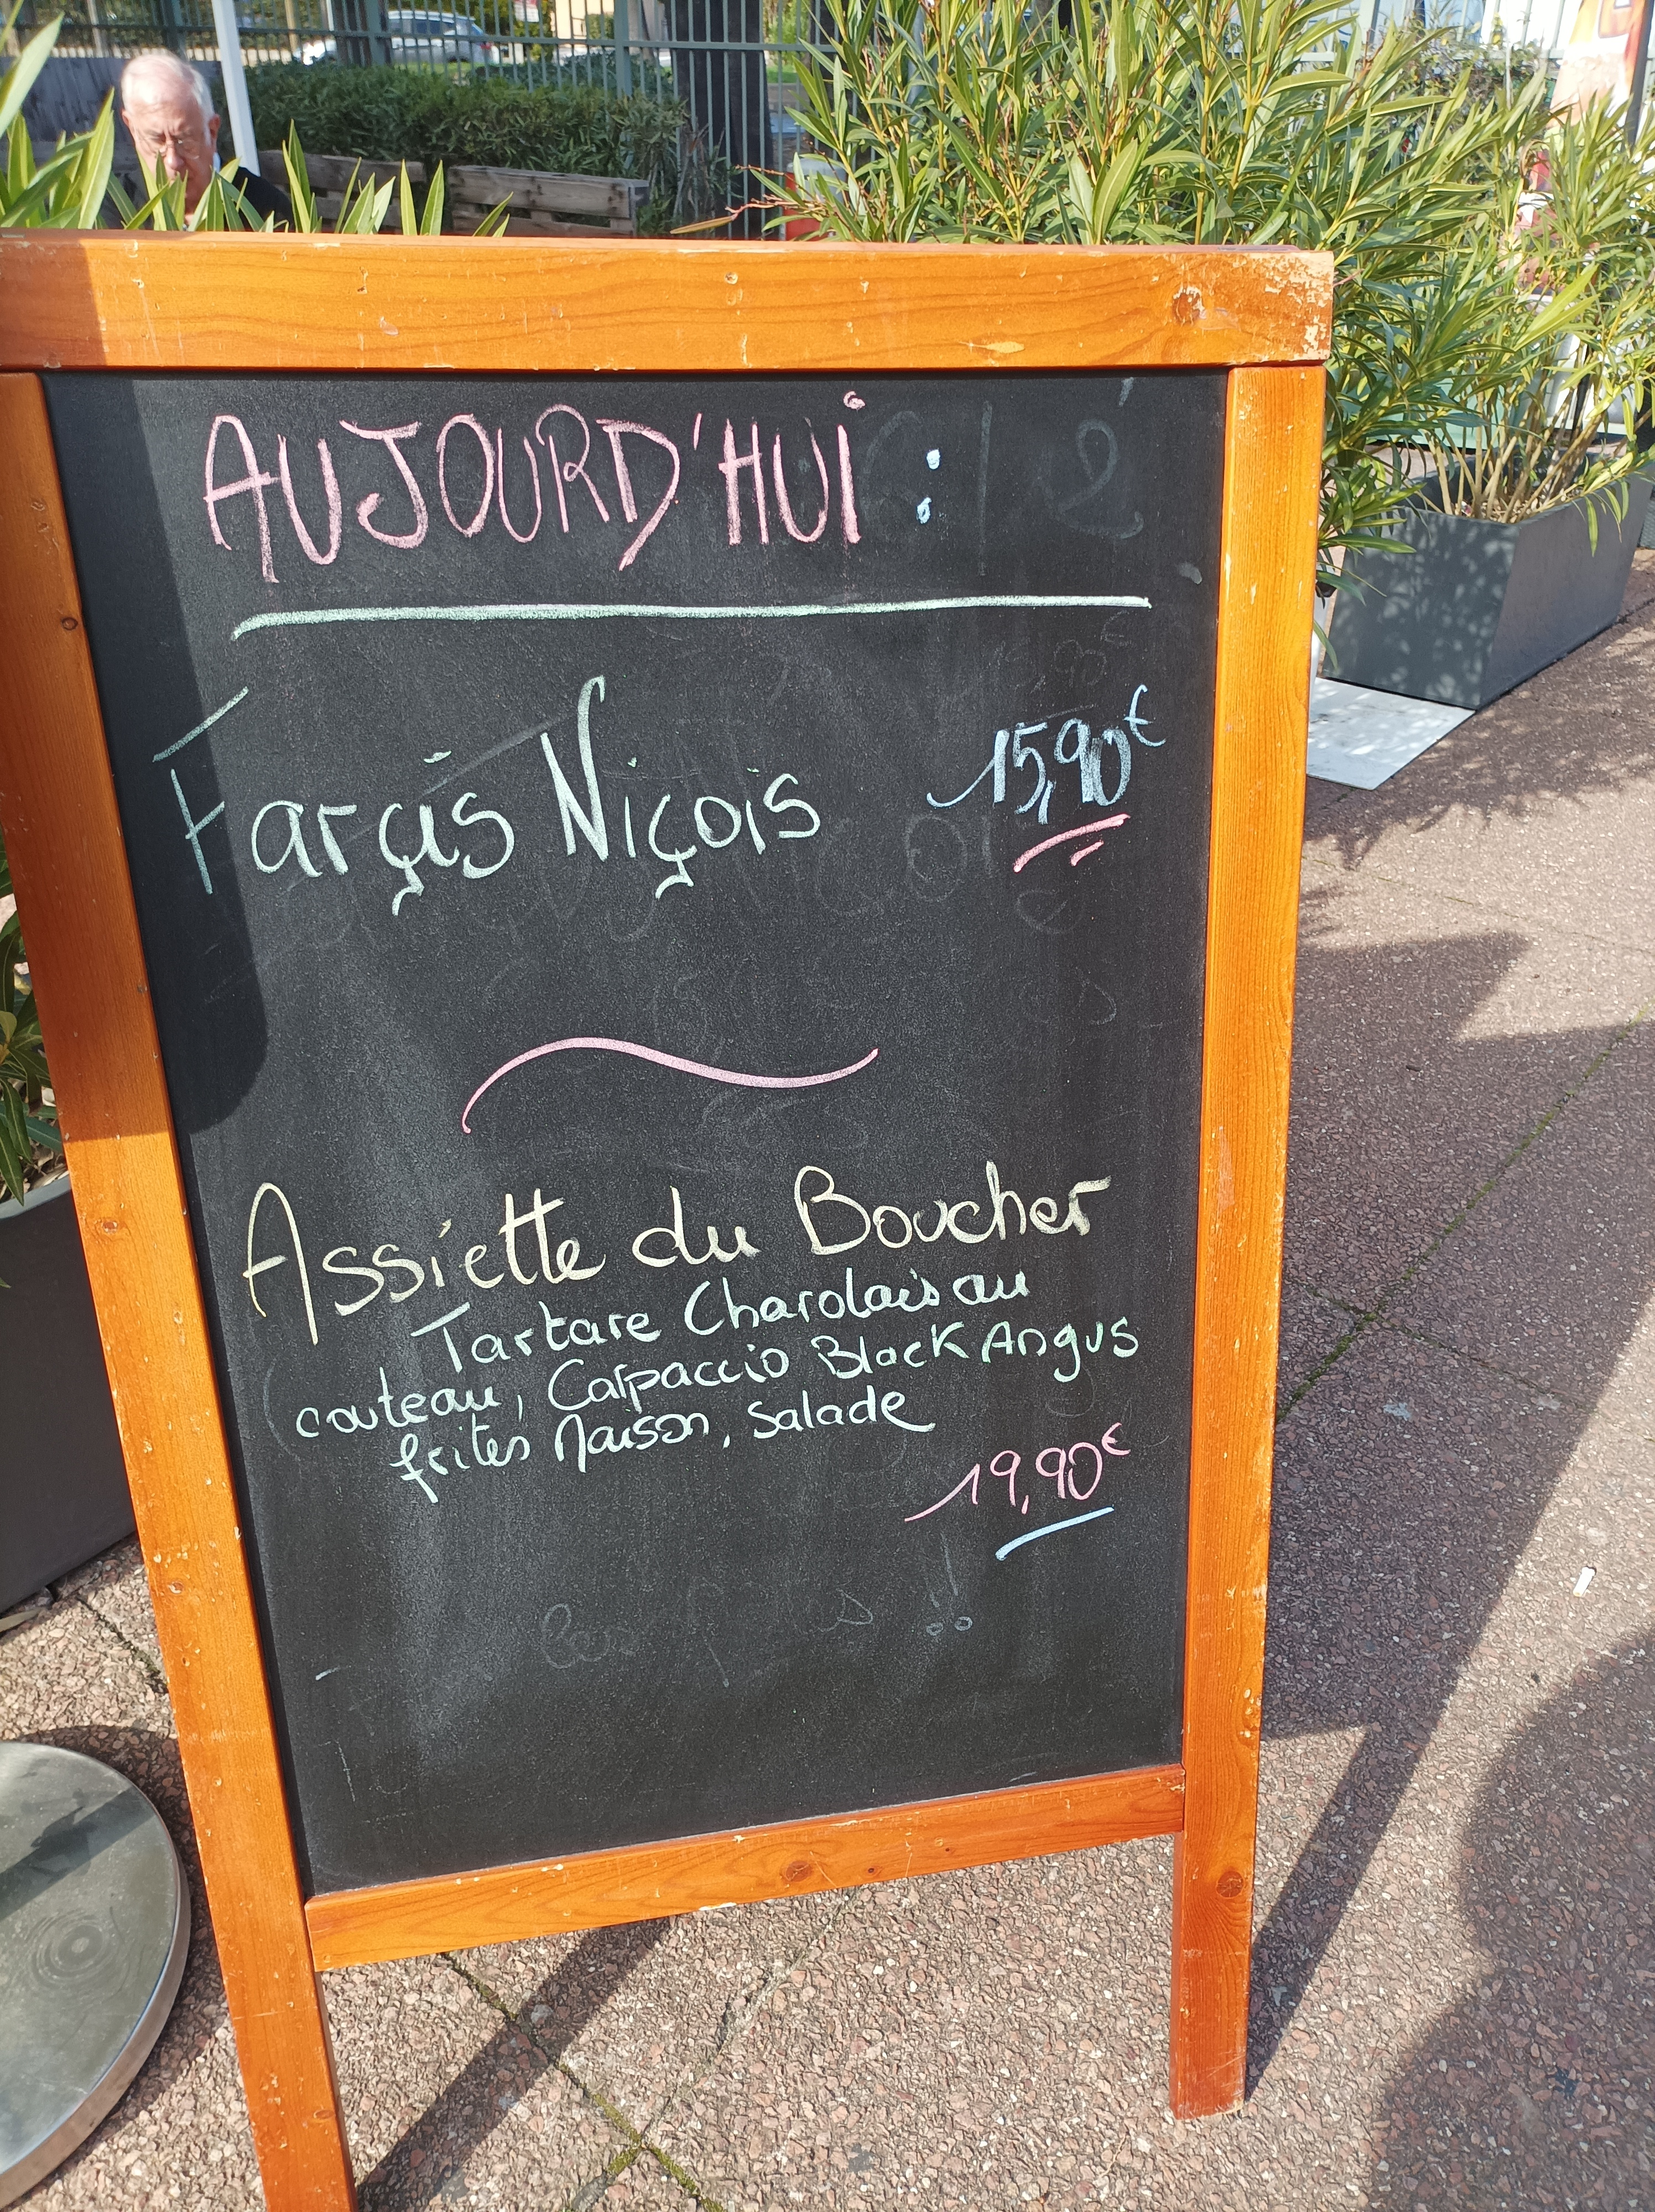 AUJOURD'HUI :
Farçis Niçois 15,90€
Assiette du Boucher
Tartare Charolais au
couteau, Carpaccio Black Angus
frites Maison, salade
19,90€